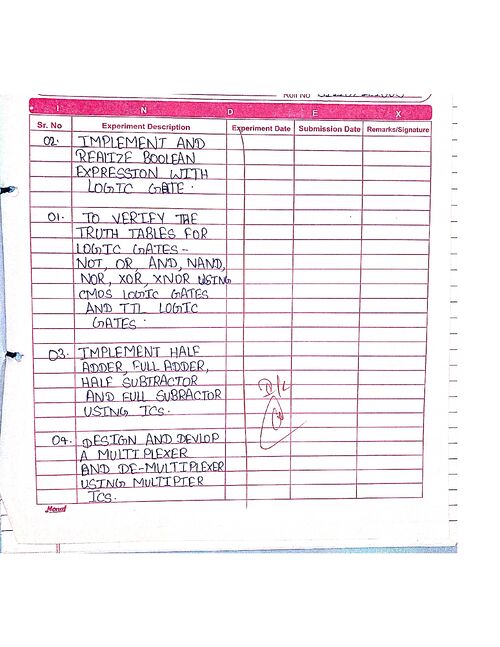 Roll No
I N D E X
Sr. No Experiment Description Experiment Date Submission Date Remarks/Signature
02. IMPLEMENT AND
REALIZE BOOLEAN
EXPRESSION WITH
LOGIC GATE.
01. TO VERIFY THE
TRUTH TABLES FOR
LOGIC GATES -
NOT, OR, AND, NAND,
NOR, XOR, XNOR USING
CMOS LOGIC GATES
AND TTL LOGIC
GATES.
03. IMPLEMENT HALF
ADDER, FULL ADDER,
HALF SUBTRACTOR
AND FULL SUBRACTOR
USING ICS.
04. DESIGN AND DEVLOP
A MULTIPLEXER
AND DE-MULTIPLEXER
USING MULTIPIER
ICS.